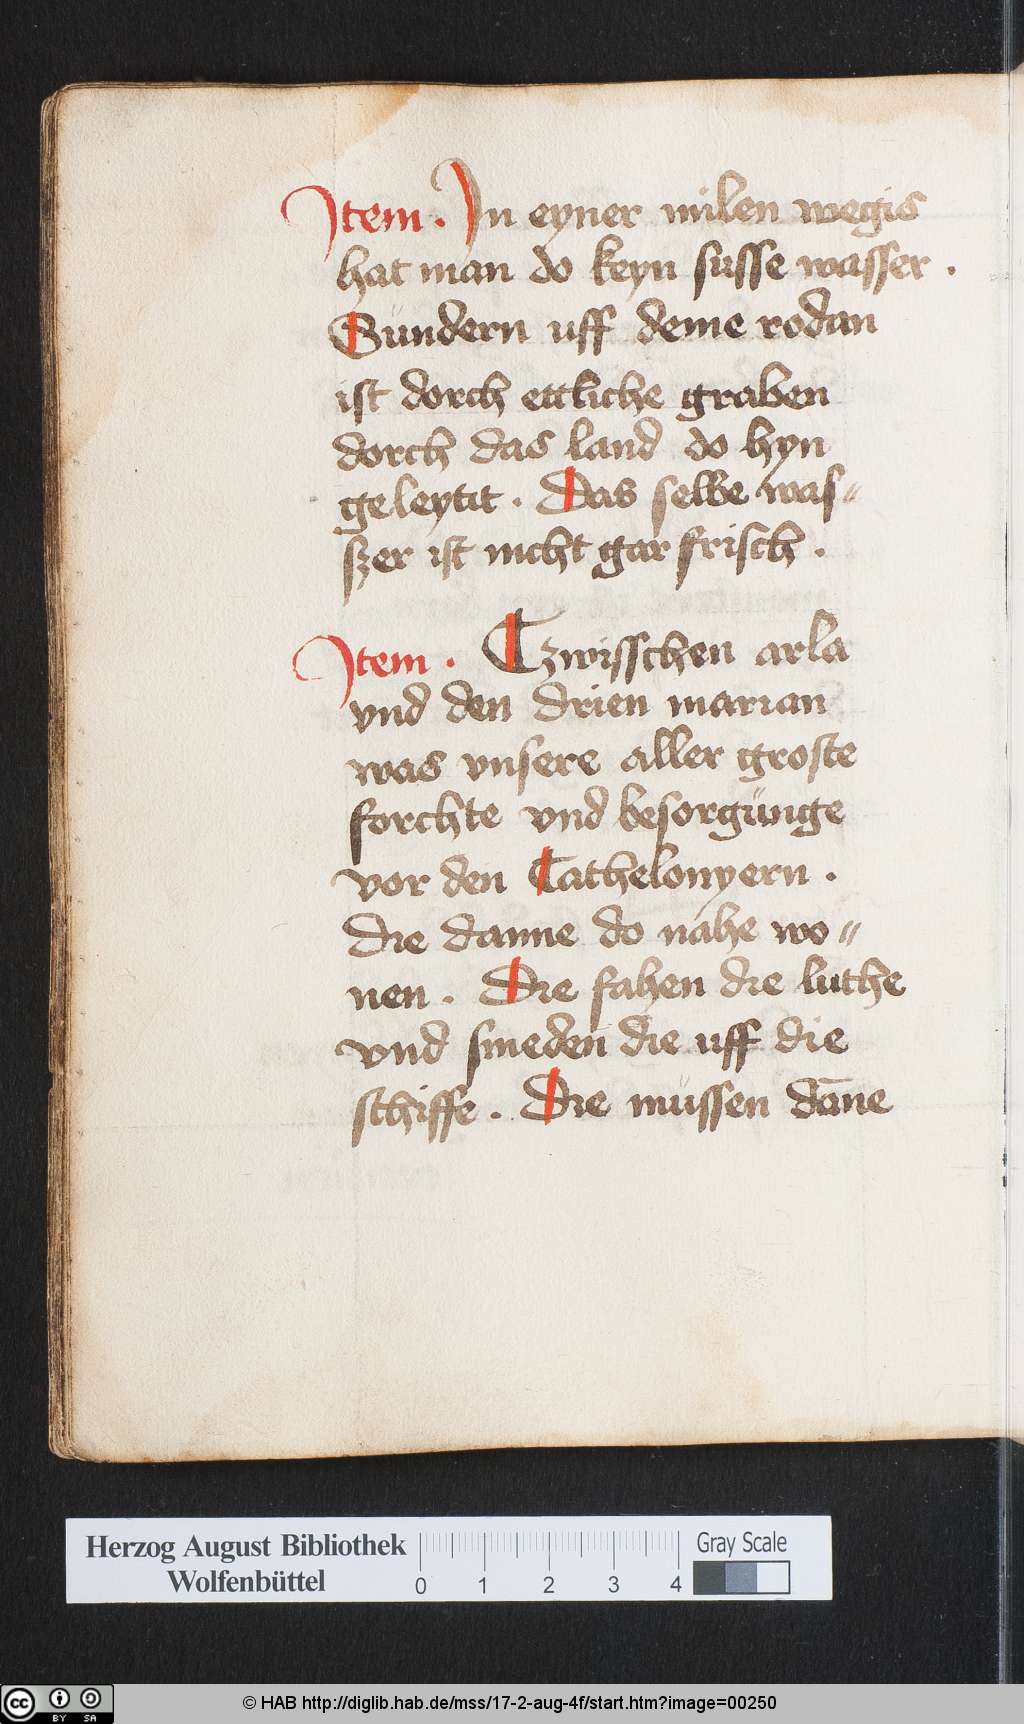 Item . In eyner milen wegis
hat man do keyn süsse wasser .
Sündern uff deme rodan
ist dorch ettliche graben
dorch das land do hyn
geleytit . Das selbe was〃
szer ist nicht gar frisch .
Item . Czwisschen arla
vnd den drien marian
was vnsere aller groste
forchte vnd besorgünge
vor den Cathelonyern .
Die danne do nahe wo〃
nen . Die fahen die luthe
vnd smeden die uff die
schiffe . Die müssen dāne
Herzog August Bibliothek
Wolfenbüttel
0 1 2 3 4
Gray Scale
cc BY SA
© HAB http://diglib.hab.de/mss/17-2-aug-4f/start.htm?image=00250